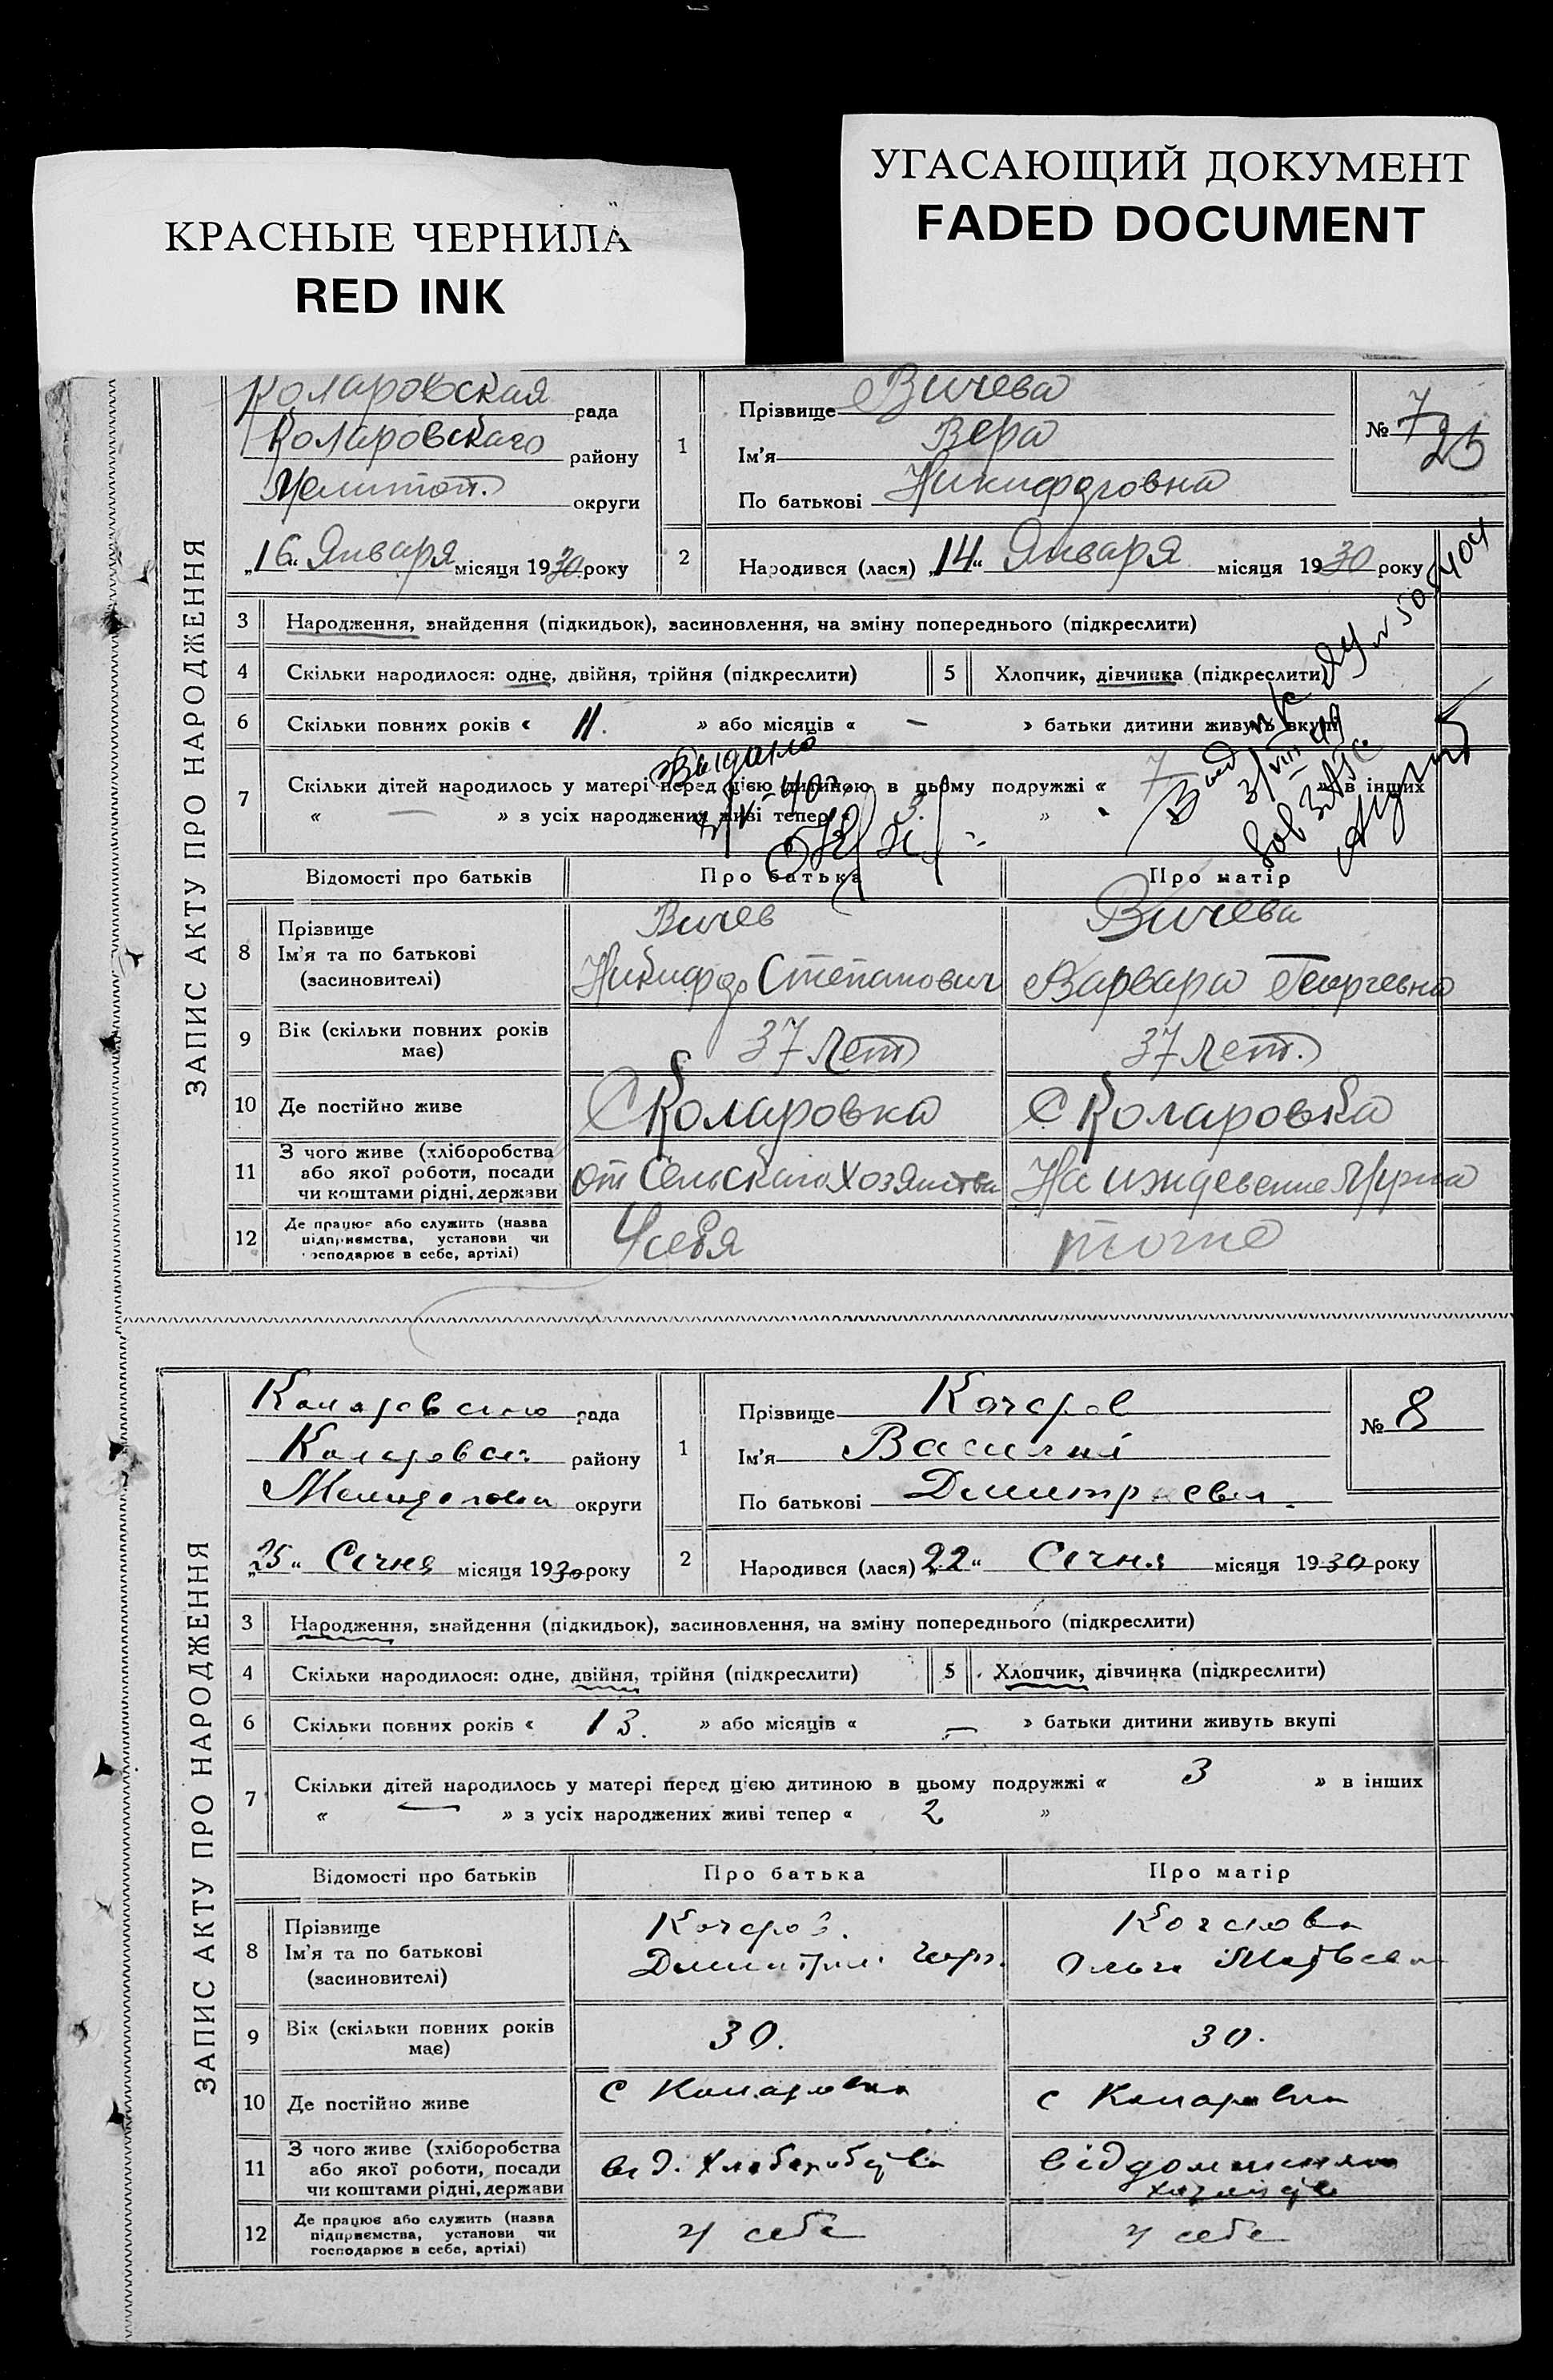 КРАСНЫЕ ЧЕРНИЛА
RED INK
УГАСАЮЩИЙ ДОКУМЕНТ
FADED DOCUMENT
ЗАПИС АКТУ ПРО НАРОДЖЕННЯ
Коларовская рада
Коларовскаго району
Мелитоп. округи
„16“ Января місяця 1930 року
1
Прізвище Вичева
Ім'я Вера
По батькові Никифоровна
№ 7
25
2
Народився (лася) „14“ Января місяця 1930 року
3 Народження, знайдення (підкидьок), засиновлення, на зміну попереднього (підкреслити)
4 Скільки народилося: одне, двійня, трійня (підкреслити)
5 Хлопчик, дівчинка (підкреслити)
6 Скільки повних років « 11. » або місяців « – » батьки дитини живуть вкупі
7 Скільки дітей народилось у матері перед цією дитиною в цьому подружжі « 7 » в інших
« — » з усіх народжених живі тепер « 3. »
Выдано
Відомості про батьків Про батька Про матір
8 Прізвище
Ім'я та по батькові
(засиновителі)
Вичев
Никифор Степанович
Вичева
Варвара Георгевна
9 Вік (скільки повних років має) 37 лет 37 лет.
10 Де постійно живе С Коларовка С Коларовка
11 З чого живе (хліборобства
або якої роботи, посади
чи коштами рідні, держави
от Сельскаго Хозяйства На иждевение Мужа
12 Де працює або служить (назва
підприємства, установи чи
господарює в себе, артілі)
У себя точно
ЗАПИС АКТУ ПРО НАРОДЖЕННЯ
рада
району
округи
„25“ Січня місяця 1930 року
1
Прізвище Кочеров
Ім'я Василий
По батькові
№ 8
2
Народився (лася) „22“ Січня місяця 1930 року
3 Народження, знайдення (підкидьок), засиновлення, на зміну попереднього (підкреслити)
4 Скільки народилося: одне, двійня, трійня (підкреслити)
5 Хлопчик, дівчинка (підкреслити)
6 Скільки повних років « 13. » або місяців « — » батьки дитини живуть вкупі
7 Скільки дітей народилось у матері перед цією дитиною в цьому подружжі « 3 » в інших
« — » з усіх народжених живі тепер « 2 »
Відомості про батьків Про батька Про матір
8 Прізвище
Ім'я та по батькові
(засиновителі)
Кочеров.
Кочерова
Ольга
9 Вік (скільки повних років має) 30. 30.
10 Де постійно живе с Коларовка с Коларовка
11 З чого живе (хліборобства
або якої роботи, посади
чи коштами рідні, держави
12 Де працює або служить (назва
підприємства, установи чи
господарює в себе, артілі)
у себе у себе